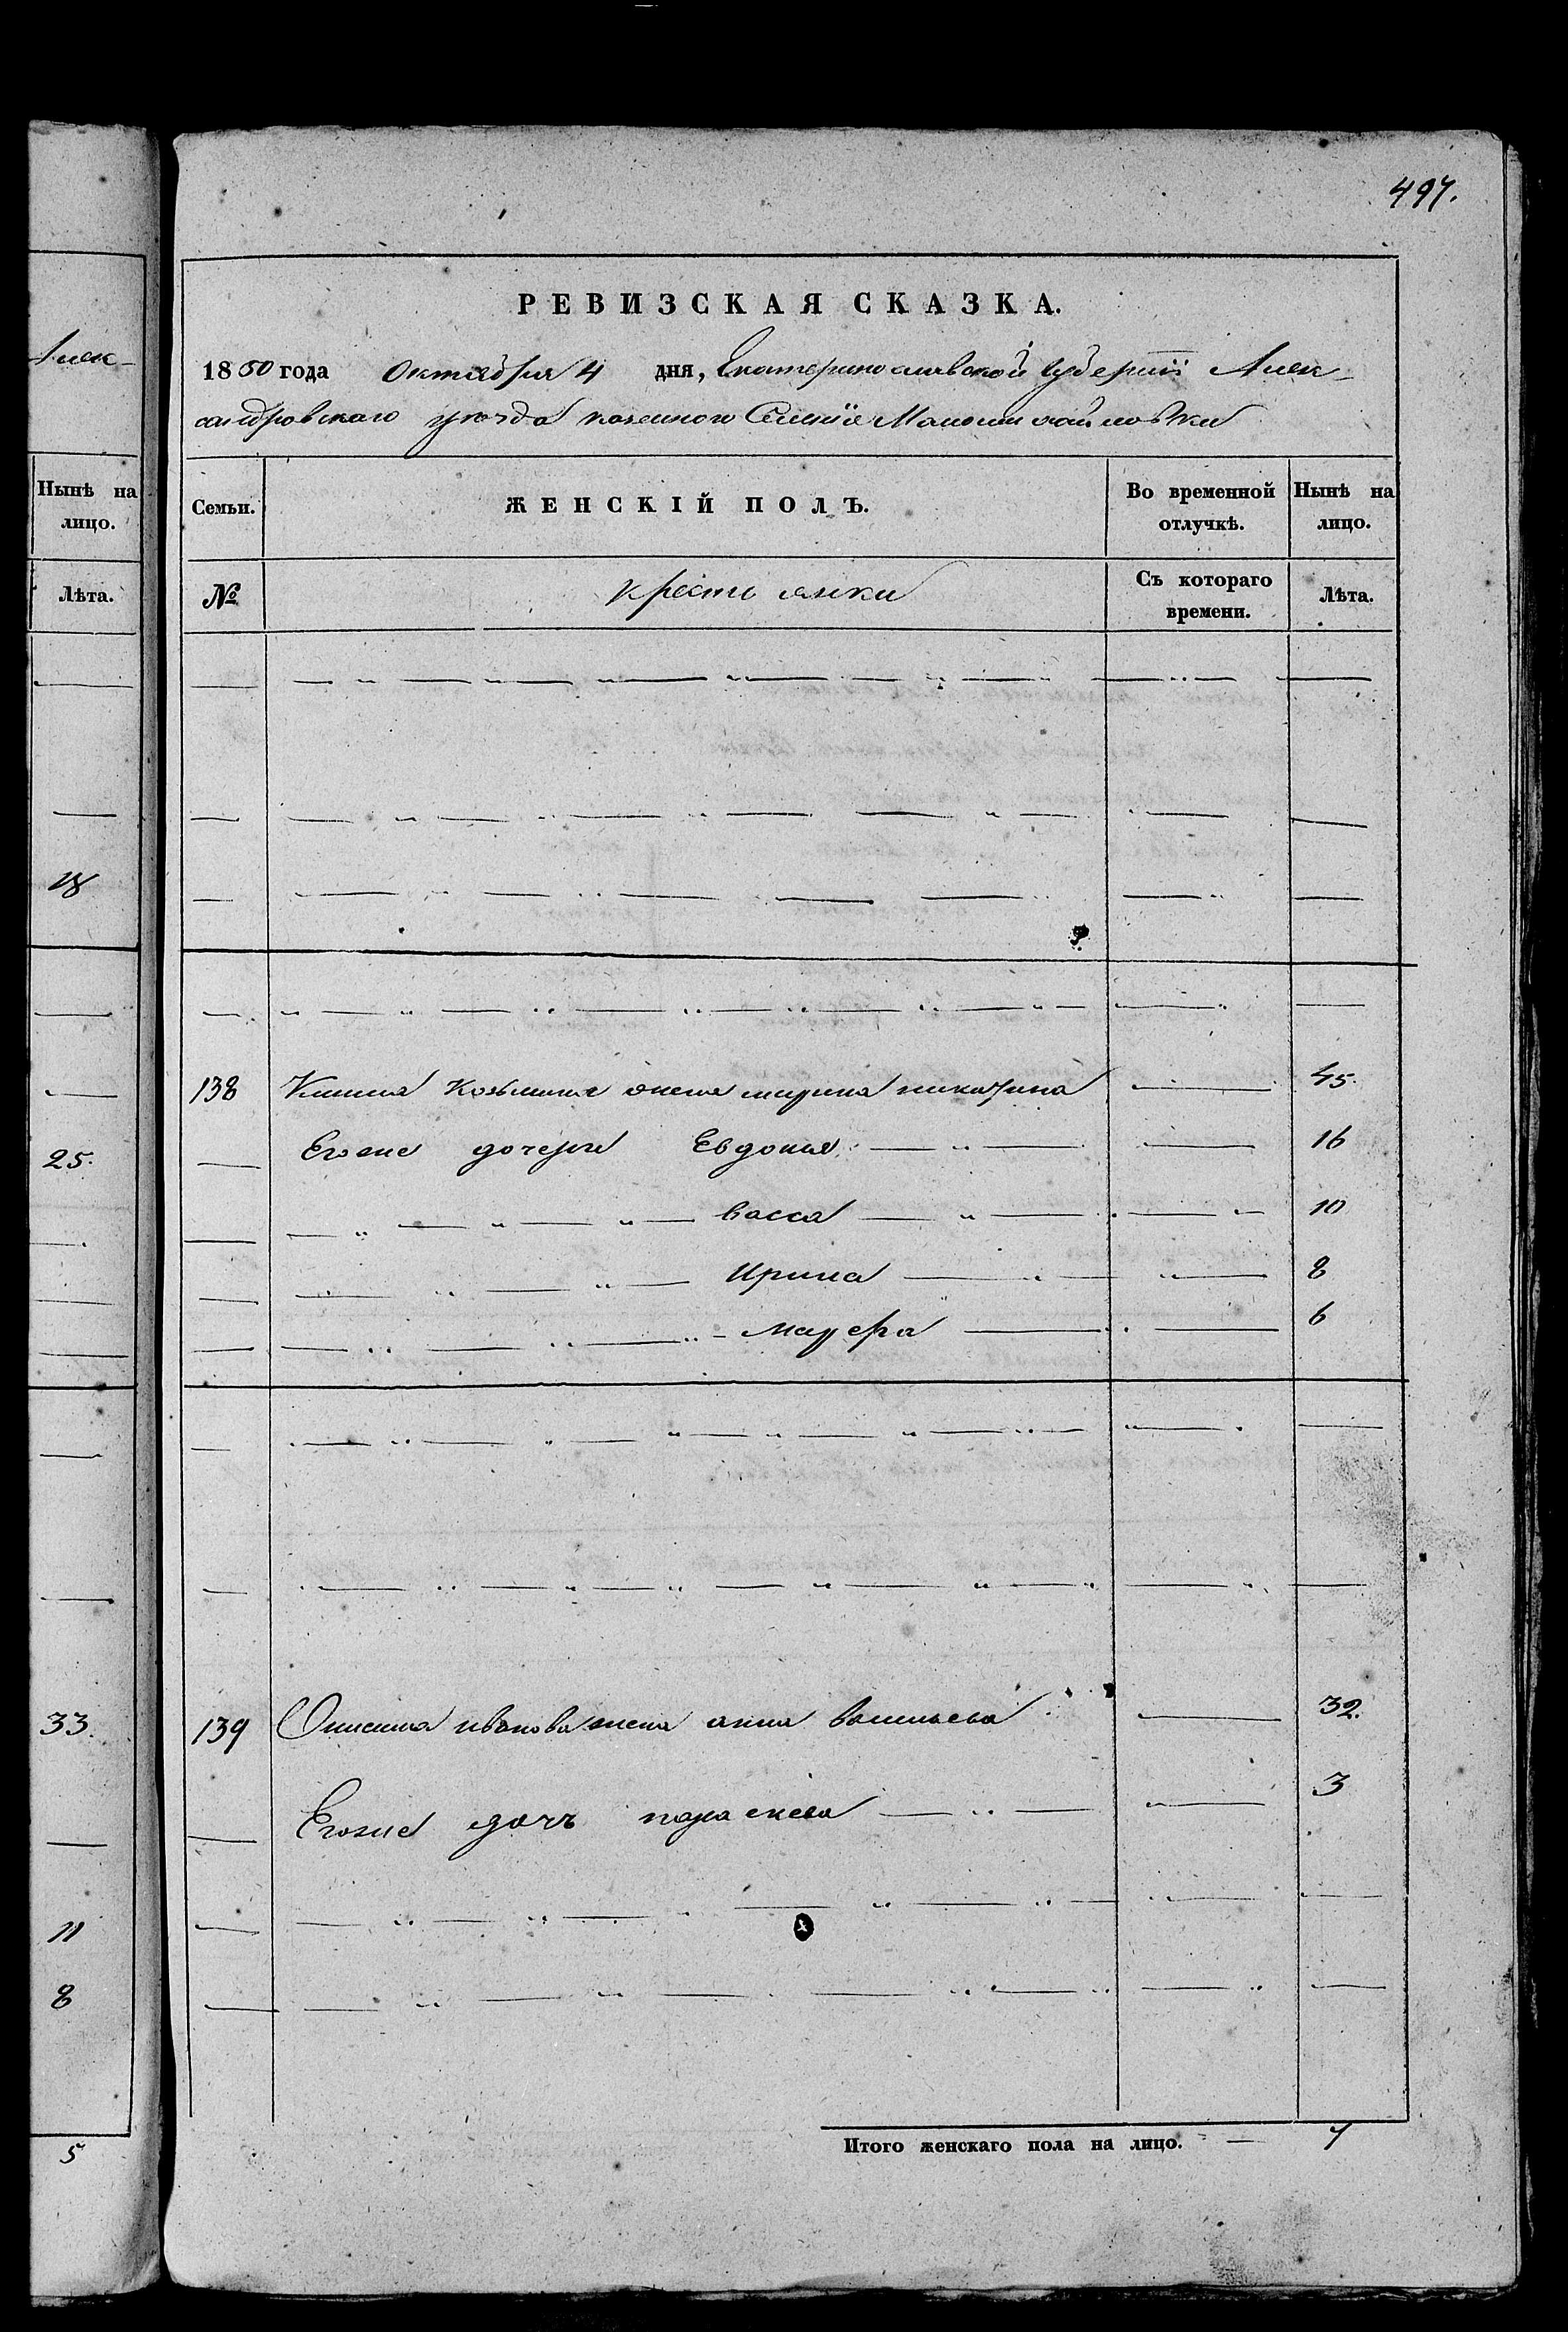 Алек-
Нынѣ на
лицо.
Лѣта.
18
25.
33.
11
8
5
497.
РЕВИЗСКАЯ СКАЗКА.
1850 года Октября 4 дня, Екатеринославской губернiи Алек-
сандровскаго уезда казенного Селенiя Маломихайловки
Семьи. ЖЕНСКІЙ ПОЛЪ. Во временной отлучкѣ. Нынѣ на лицо.
№ крестьянки Съ котораго времени. Лѣта.
138 Козьмина жена марина 45.
Егоже дочери Евдокия 16
васса 10
Ирина 8
мавра 6
139 Онисима иванова жена анна васильева 32.
Егоже дочь параскева 3
Итого женскаго пола на лицо. — 7